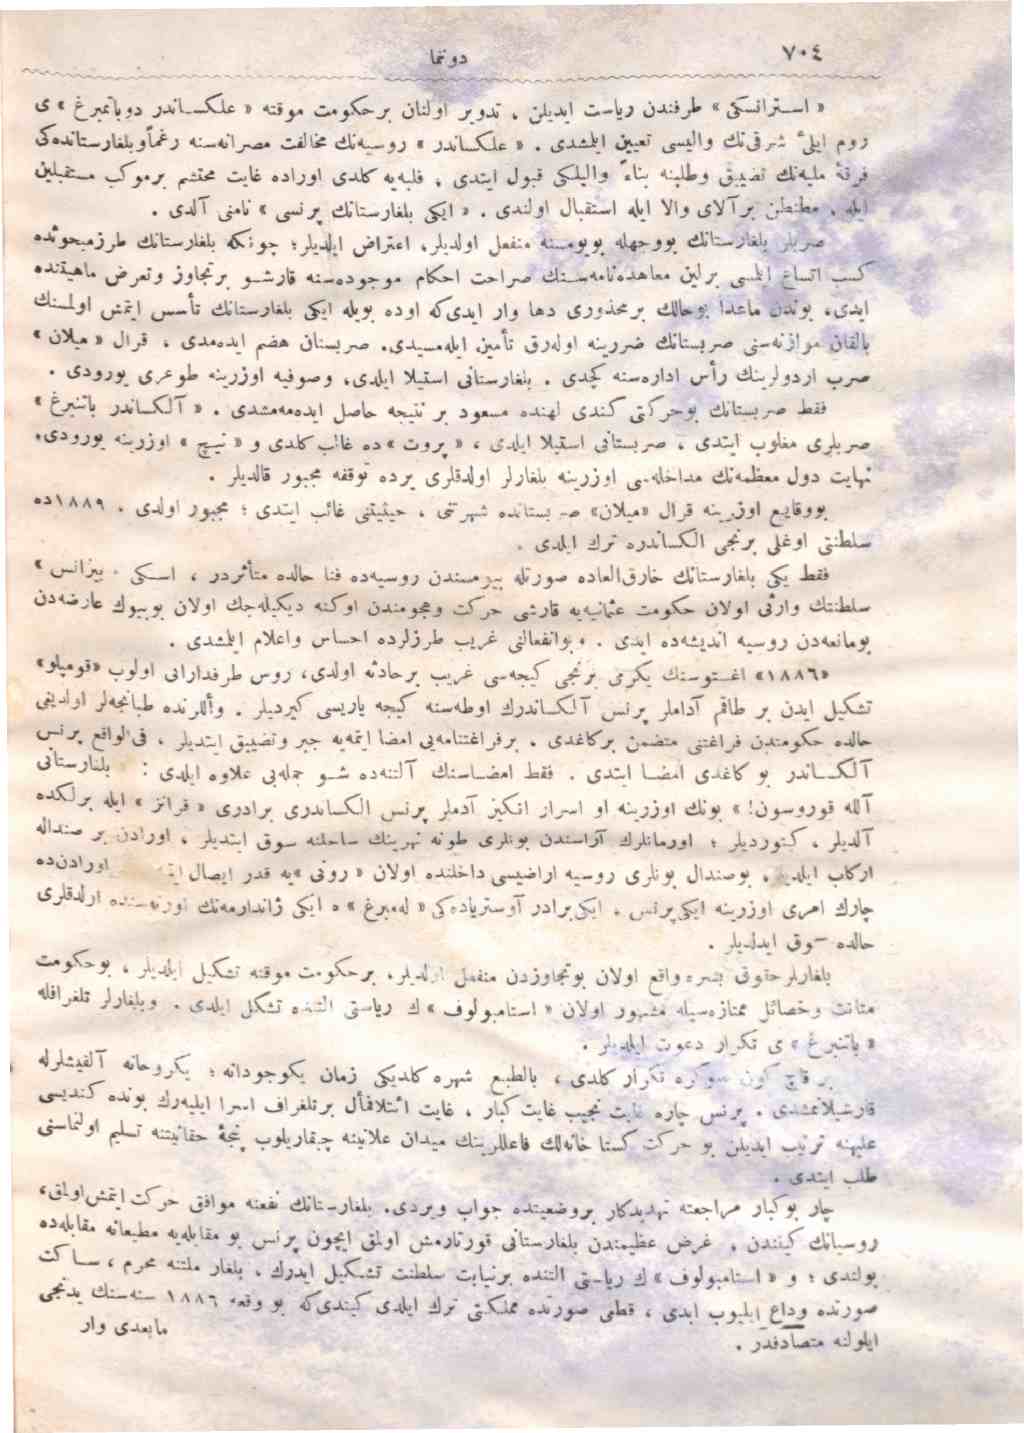 ٧٠٤
دوننما
« استرانسكی » طرفندن رياست ايديلن ، تدوير اولنان بر حكومت موقته « علكساندر دوباتمبرغ » ی
روم ايلئ شرقی‌نك واليسی تعيين ايلمشدی . « علكساندر » روسيه‌نك مخالفت مصرانه‌سنه رغماً وبلغارستانده‌كی
فرقهٔ مليه‌نك تضييق وطلبنه بناءً واليلكی قبول ايتدی ، فلبه‌يه كلدی اوراده غايت محتشم بر موكب مستقبلين
ايله ، مطنطن بر آلای والا ايله استقبال اولندی . « ايكی بلغارستانك پرنسی » نامنی آلدی .
صربلر بلغارستانك بووجهله بويومسنه منفعل اولديلر، اعتراض ايلديلر؛ چونكه بلغارستانك طرز مبحوثده
كسب اتساع ايلمسی برلين معاهده‌نامه‌سنك صراحت احكام موجوده‌سنه قارشو بر تجاوز وتعرض ماهيتنده
ايدی، بوندن ماعدا بو حالك بر محذوری دها وار ايدی‌كه اوده بويله ايكی بلغارستانك تأسس ايتمش اولمسنك
بالقان موازنه‌سنی صربستانك ضررينه اوله‌رق تأمين ايله‌مسيدی. صربستان هضم ايده‌مدی ، قرال « ميلان »
صرب اردولرينك رأس اداره‌سنه كچدی . بلغارستانی استيلا ايلدی، وصوفيه اوزرينه طوغری يورودی .
فقط صربستانك بو حركتی كندی لهنده مسعود بر نتيجه حاصل ايده‌مه‌مشدی . « آلكساندر باتنبرغ »
صربلری مغلوب ايتدی ، صربستانی استيلا ايلدی ، « پروت » ده غالب كلدی و « نيسچ » اوزرينه يورودی،
نهايت دول معظمه‌نك مداخله‌سی اوزرينه بلغارلر اولدقلری يرده توقفه مجبور قالديلر .
بو وقايع اوزرينه قرال « ميلان» صربستانده شهرتنی ، حيثيتنی غائب ايتدی ؛ مجبور اولدی . ١٨٨٩ده
سلطنتی اوغلی برنجی الكساندره ترك ايلدی .
فقط يكی بلغارستانك خارق‌العاده صورتله بيومسندن روسيه‌ده فنا حالده متأثردر ، اسكی « بيزانس »
سلطنتك وارثی اولان حكومت عثمانيه‌يه قارشی حركت وهجومندن اوكنه ديكيله‌جك اولان بو بيوك عارضه‌دن
بو مانعه‌دن روسيه انديشه‌ده ايدی . وبو انفعالنی غريب طرزلرده احساس واعلام ايلمشدی .
«١٨٨٦» اغستوسنك يكرمی برنجی كيجه‌سی غريب بر حادثه اولدی، روس طرفدارانی اولوب «قومپلو»
تشكيل ايدن بر طاقم آداملر پرنس آلكساندرك اوطه‌سنه كيجه ياريسی كيرديلر . وأللرنده طبانجه‌لر اولديغی
حالده حكومندن فراغتنی متضمن بر كاغدی ، بر فراغتنامه‌يی امضا ايتمه‌يه جبر وتضييق ايتديلر ، فی‌الواقع پرنس
آلكساندر بو كاغدی امضا ايتدی . فقط امضاسنك آلتنده شو جمله‌يی علاوه ايلدی : « بلغارستانی
آلله قوروسون! » بونك اوزرينه او اسرار انكيز آدملر پرنس الكساندری برادری « فرانز » ايله برلكده
آلديلر ، كتورديلر ؛ اورمانلرك آراسندن بونلری طونه نهرينك ساحلنه سوق ايتديلر ، اورادن بر صنداله
اركاب ايلديلر، بو صندال بونلری روسيه اراضيسی داخلنده اولان « رونی »يه قدر ايصال اورادن‌ده
چارك امری اوزرينه ايكی پرنس ، ايكی برادر آوسترياده‌كی « له‌مبرغ » ه ايكی ژاندارمه‌نك اورته‌سنده اولدقلری
حالده سوق ايدلديلر .
بلغارلر حقوق بشره واقع اولان بو تجاوزدن منفعل اولديلر، بر حكومت موقته تشكيل ايلديلر ، بو حكومت
متانت وخصائل ممتازه‌سيله مشهور اولان « استامبولوف » ك رياستی التنده تشكل ايلدی . وبلغارلر تلغرافله
« باتنبرغ » ی تكرار دعوت ايلديلر .
بر قاچ كون صوكره تكرار كلدی ، بالطبع شهره كلديكی زمان يكوجودانه ؛ يكروحانه آلقيشلرله
قارشيلانمشدی . پرنس چاره غايت نجيب غايت كبار ، غايت ائتلافمأل بر تلغراف اسرا ايليه‌رك بونده كنديسی
عليهنه ترتيب ايديلن بو حركت كستاخانه‌لك فاعللرينك ميدان علانيته چيقاريلوب پنجهٔ حقانيتنه تسليم اولنماسنی
طلب ايتدی .
چار بو كبار مراجعته تهديدكار بر وضعيتده جواب ويردی. بلغارستانك نفعنه موافق حركت ايتمش اولمق،
روسيانك كينندن ، غرض عظيمندن بلغارستانی قورتارمش اولمق ايچون پرنس بو مقابله‌يه مطيعانه مقابله‌ده
بولندی ؛ و « استامبولوف » ك رياستی التنده بر نيابت سلطنت تشكيل ايدرك ، بلغار ملتنه محرم ، ساكت
صورتده وداع ايليوب ابدی ، قطعی صورتده مملكتی ترك ايلدی كيتدی‌كه بو وقعه ١٨٨٦ سنه‌سنك يدنجی
ايلولنه متصادفدر .
مابعدی وار